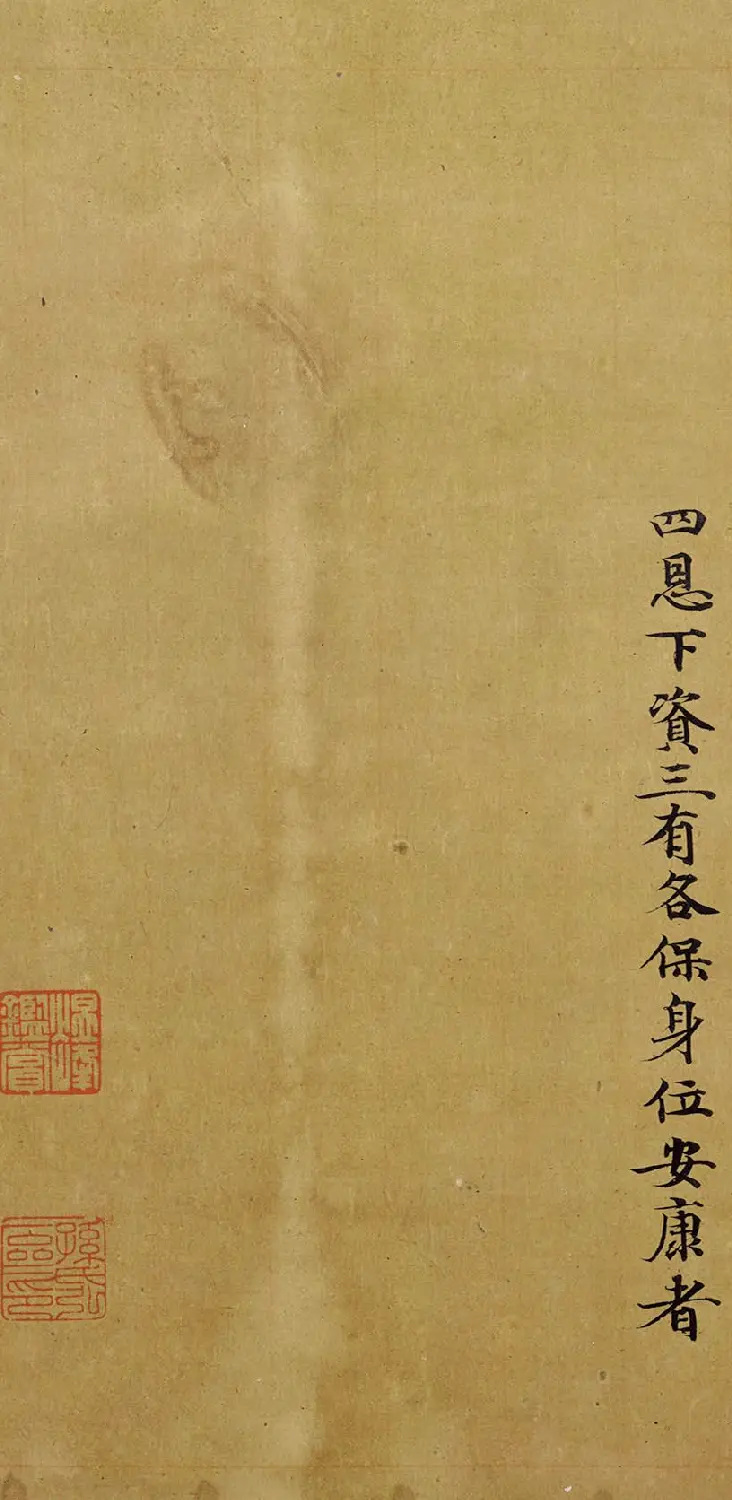 四恩下資三有各保身位安康者
鑑賞